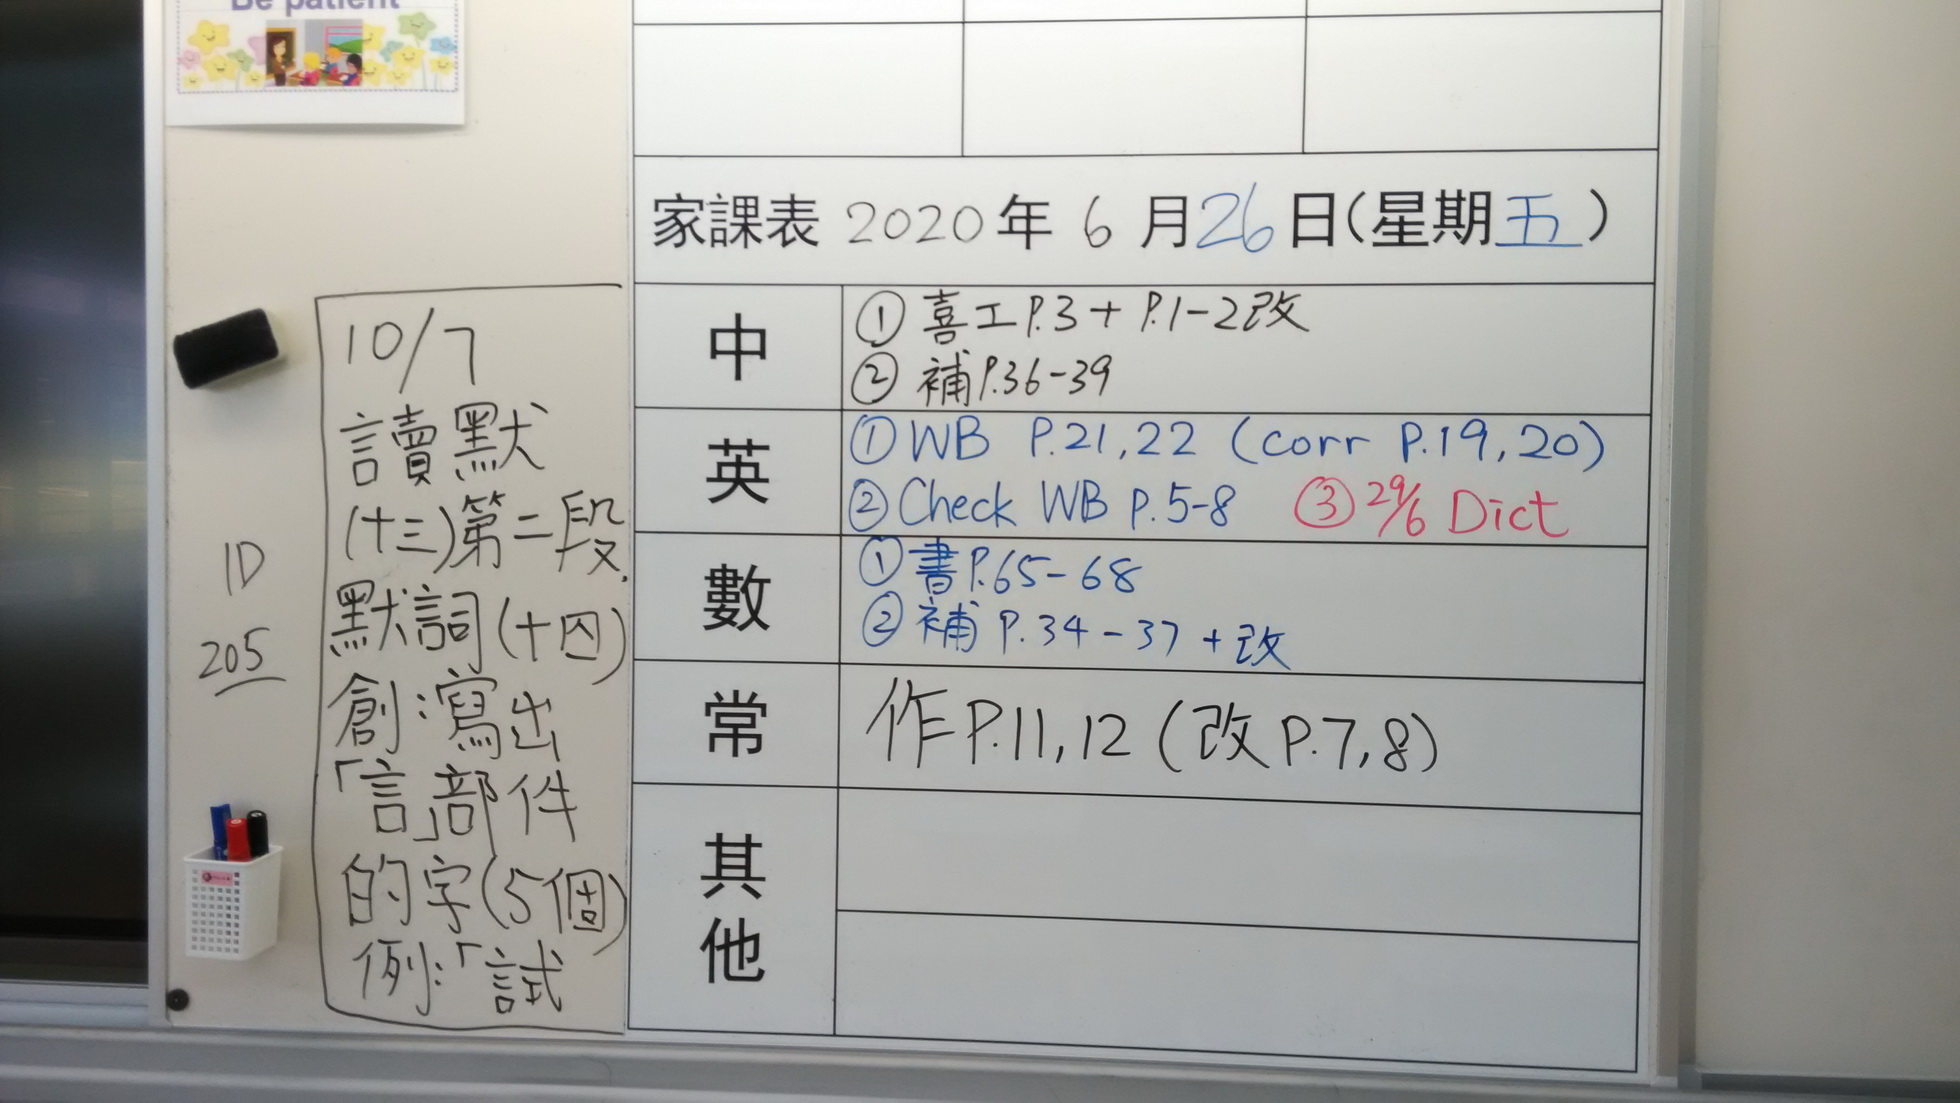 Be patient
家課表 2020年 6月26日(星期五)
中
① 喜工P.3 + P.1-2改
② 補P.36-39
英
① WB P.21,22 (corr P.19,20)
② Check WB P.5-8 ③ 29/6 Dict
數
① 書P.65-68
② 補 P.34-37 + 改
常
作 P.11,12 (改 P.7,8)
其他
10/7
讀默
(十三)第二段.
默詞(十四)
創:寫出
「言」部件
的字(5個)
例:「試
1D
205